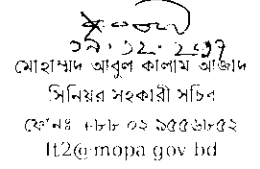 ০৭.১২.২০১৭
মোহাম্মদ আবুল কালাম আজাদ
সিনিয়র সহকারী সচিব
ফোনঃ +৮৮ ০২ ৯৫৫৬৮৫২
lt2@mopa.gov.bd